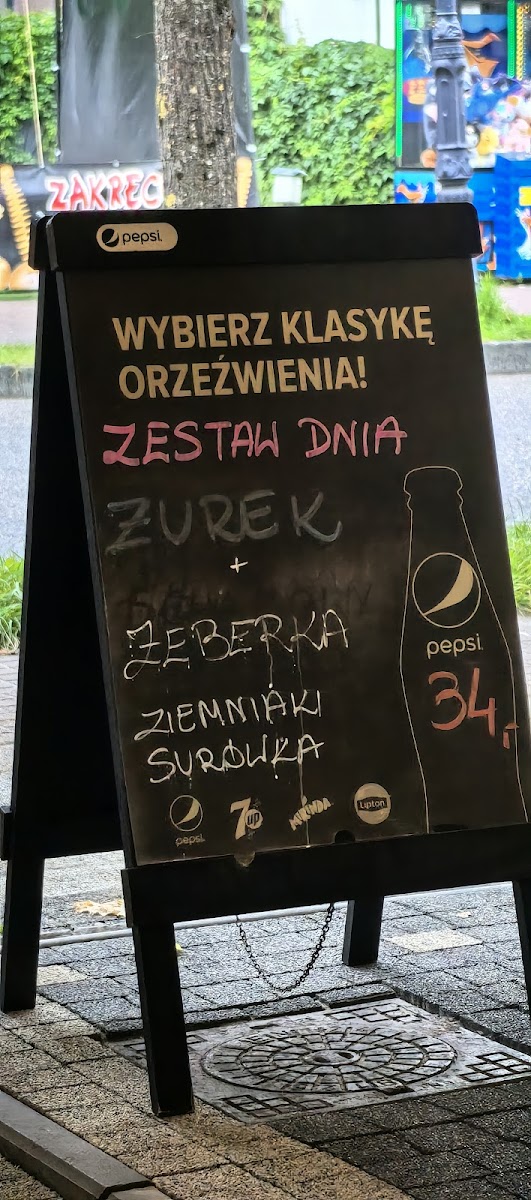 ZAKRĘC
pepsi
WYBIERZ KLASYKĘ
ORZEŹWIENIA!
ZESTAW DNIA
ŻUREK
+
ŻEBERKA
ZIEMNIAKI
SURÓWKA
pepsi
34,-
pepsi 7up MIRINDA Lipton